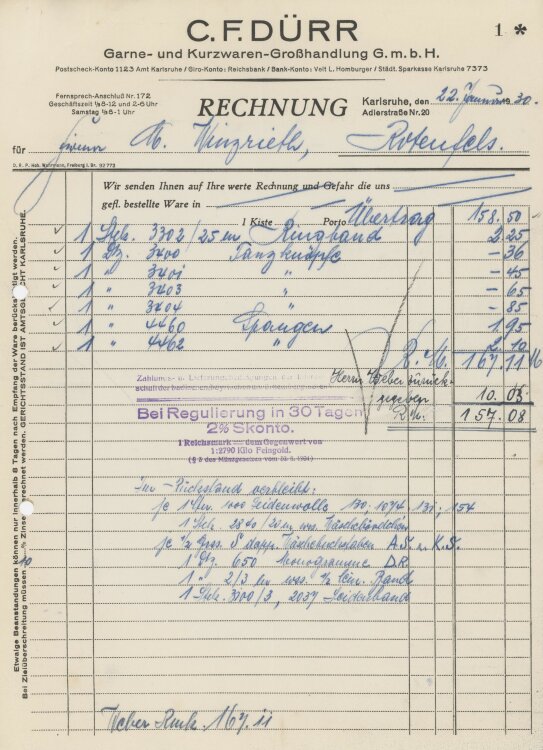 C. F. DÜRR
1 *
Garne- und Kurzwaren-Großhandlung G. m. b. H.
Postscheck-Konto 1123 Amt Karlsruhe / Giro-Konto: Reichsbank / Bank-Konto: Veit L. Homburger / Städt. Sparkasse Karlsruhe 7373
Fernsprech-Anschluß Nr. 172
Geschäftszeit ½8-12 und 2-6 Uhr
Samstag ½8-1 Uhr
RECHNUNG
Karlsruhe, den 22. Januar 1930.
Adlerstraße Nr. 20
für Firma M. Hinzrieth, Rotenfels.
Wir senden Ihnen auf Ihre werte Rechnung und Gefahr die uns
gefl. bestellte Ware in
1 Kiste Porto Übertrag 158.50
1 Stck. 3302/25 m Ringband 2.25
1 Dz. 3400 Tanzknöpfe -36
1 " 3401 " -45
1 " 3403 " -65
1 " 3404 " -85
1 " 4460 Spangen 1.95
1 " 4462 " 2.10
R.M. 167.11
Herrn Weber zurück-
gegeben 10.03
Rm. 157.08
Bei Regulierung in 30 Tagen
2% Skonto.
1 Reichsmark = dem Gegenwert von
1:2790 Kilo Feingold.
Im Rückstand verbleibt:
130, 1074, 131, 154
1 Dz. 650 Monogramme D.R.
1 " 2/3 m Band
1 Stck. 3200/3, 2037 Seidenband
Weber Rmk. 167.11
Etwaige Beanstandungen können nur innerhalb 8 Tagen nach Empfang der Ware berücksichtigt werden.
Bei Zielüberschreitung müssen 10 % Zinsen berechnet werden. GERICHTSSTAND IST AMTSGERICHT KARLSRUHE.